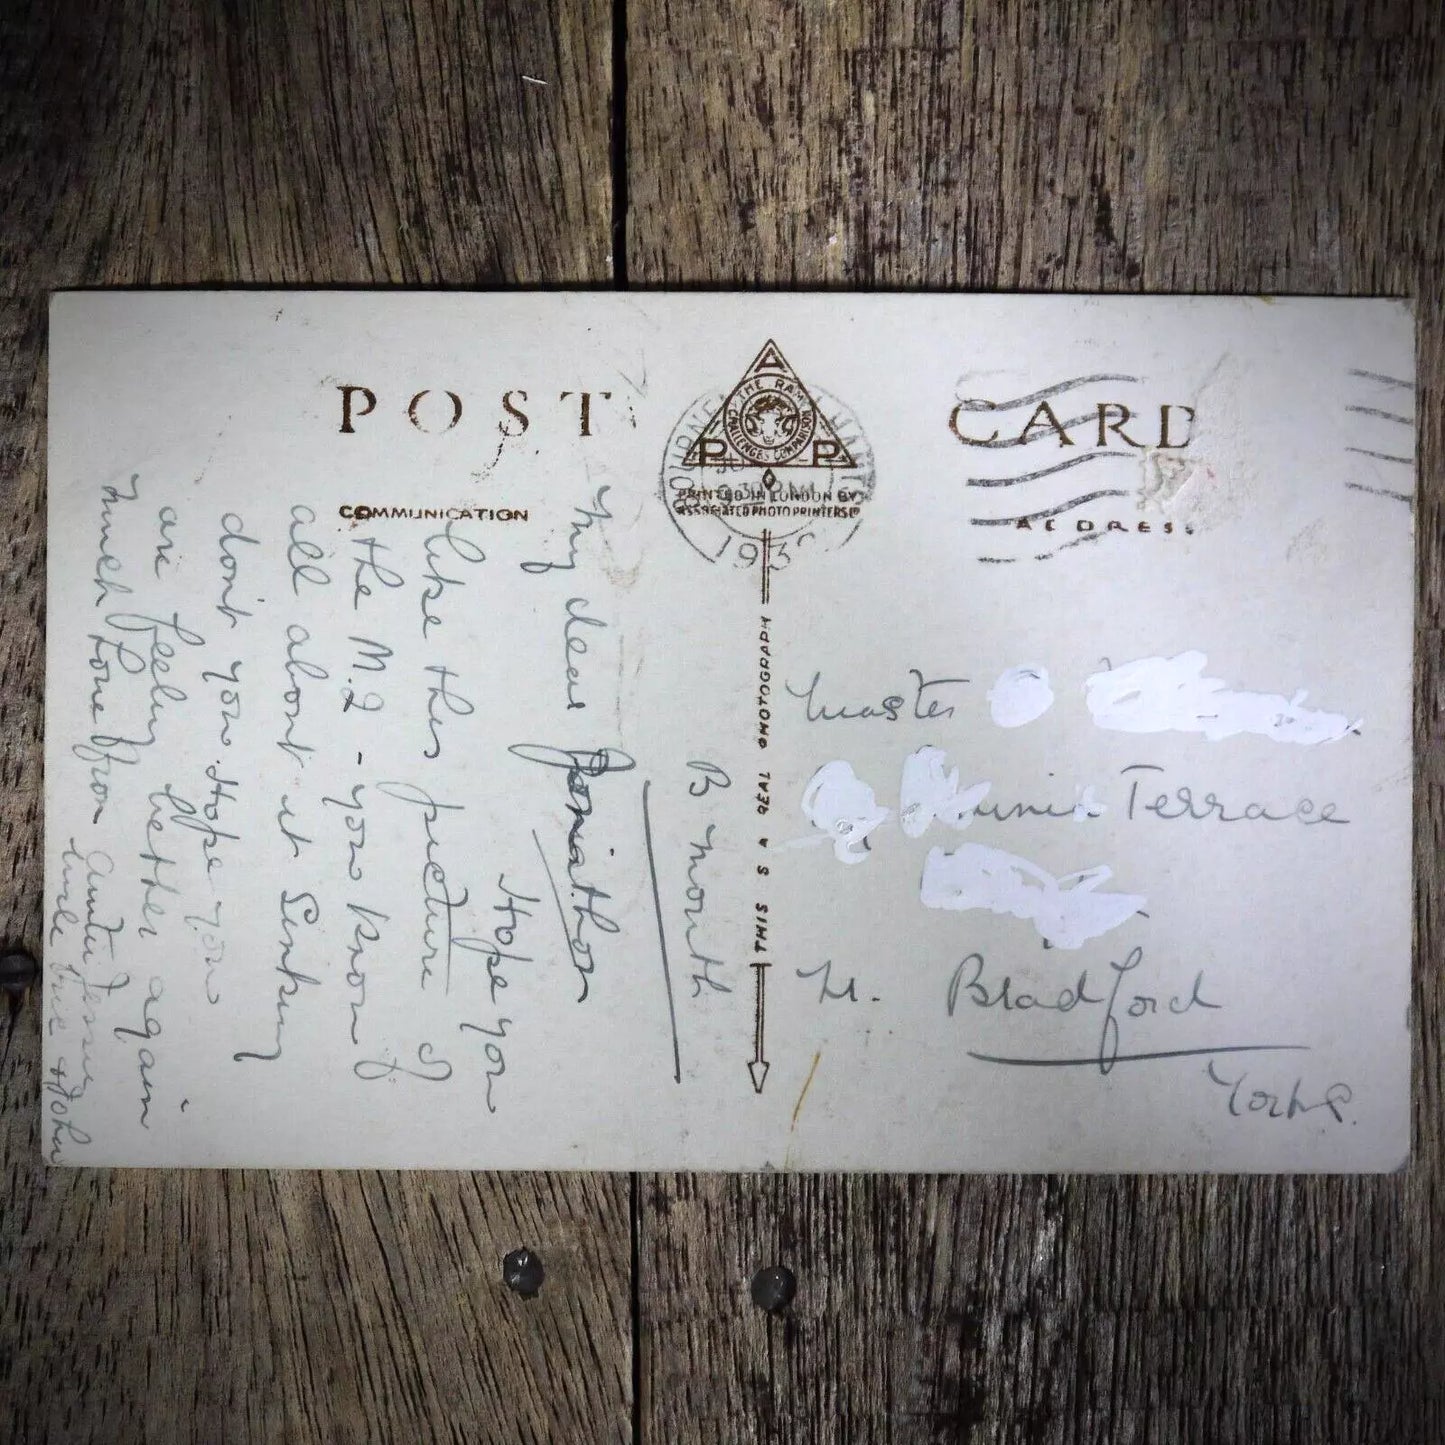 POST CARD
COMMUNICATION
ADDRESS.
A P P
THE RAM
CHALLENGES COMPARISON
PRINTED IN LONDON BY
ASSOCIATED PHOTO PRINTERS LD
BOURNEMOUTH
193
THIS IS A REAL PHOTOGRAPH
B'mouth
My dear Jonathon
Hope you
like this picture of
the M.2 - you know
all about it sinking
don't you. Hope you
are feeling better again
much love from Auntie Jessie
Uncle Eric & John
Master
Terrace
Nr. Bradford
Yorks.